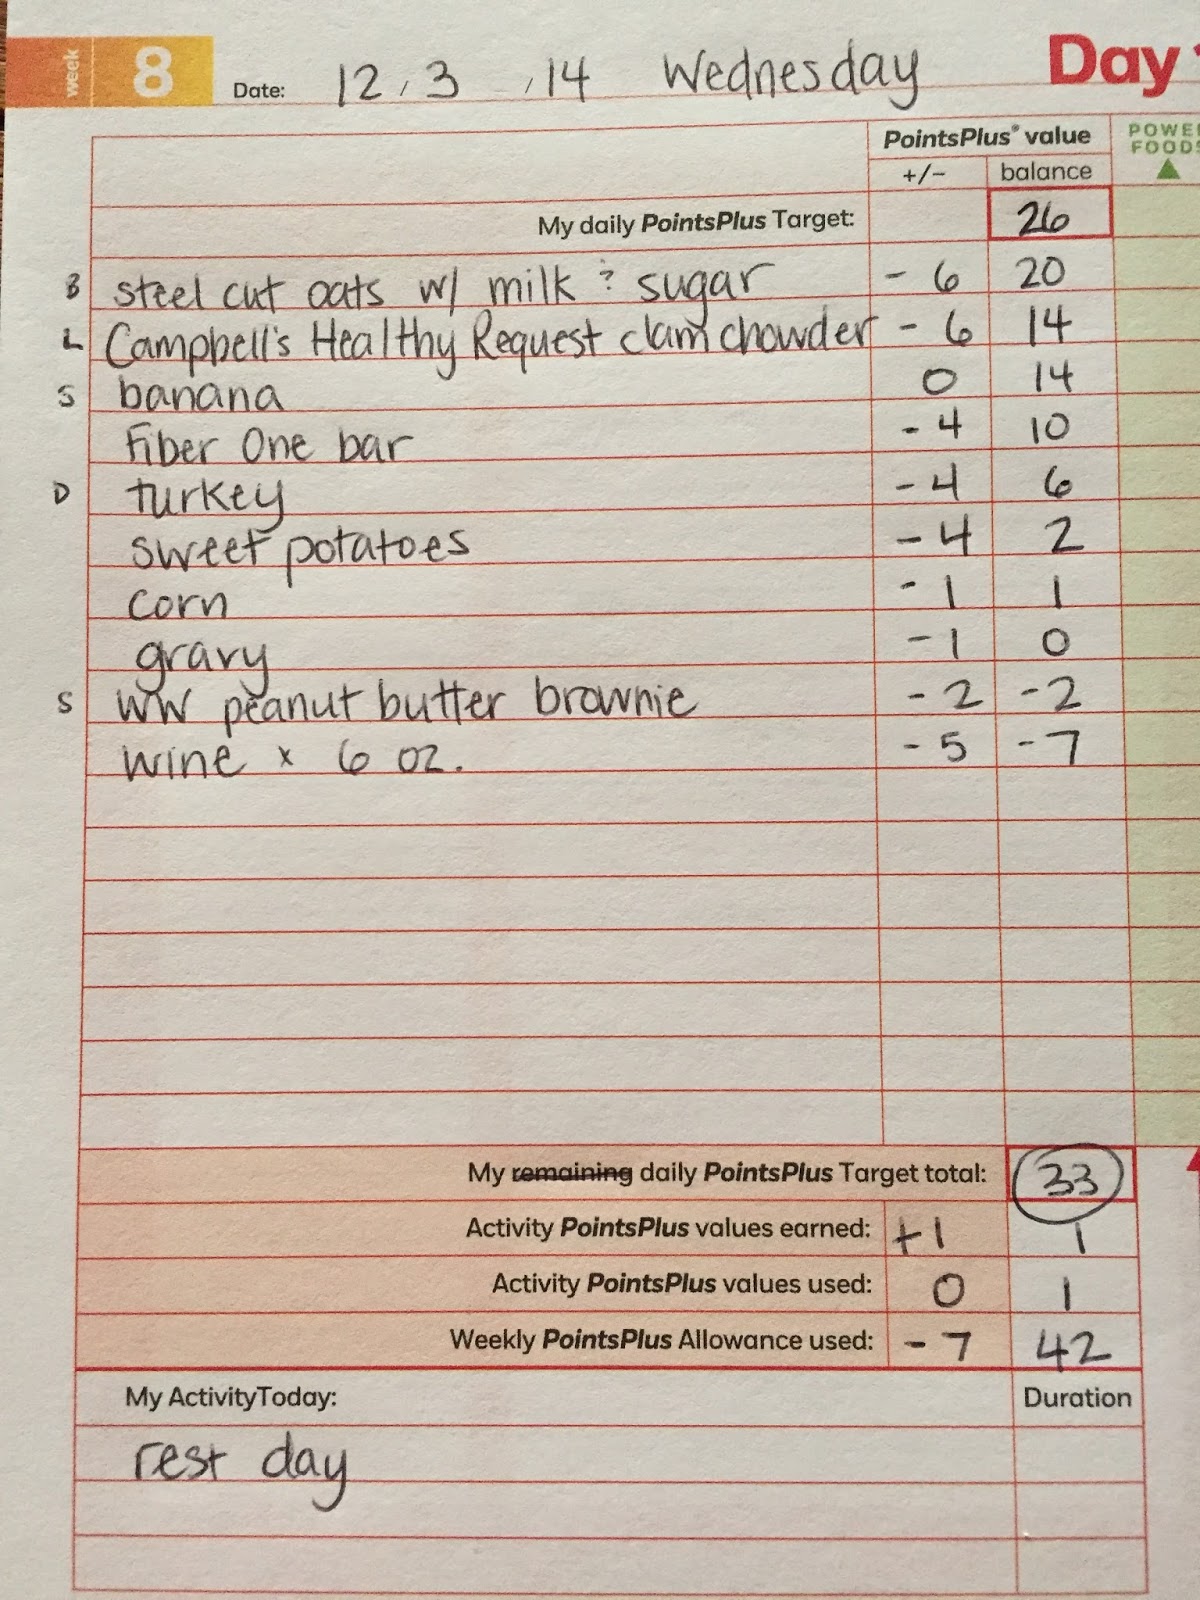 week 8 Date: 12, 3, 14 Wednesday Day
PointsPlus® value POWER FOODS
+/- balance
My daily PointsPlus Target: 26
B steel cut oats w/ milk & sugar - 6 20
L Campbell's Healthy Request clam chowder - 6 14
S banana 0 14
Fiber One bar - 4 10
D turkey - 4 6
sweet potatoes - 4 2
corn - 1 1
gravy - 1 0
S WW peanut butter brownie - 2 - 2
wine x 6 oz. - 5 - 7
My remaining daily PointsPlus Target total: 33
Activity PointsPlus values earned: +1 1
Activity PointsPlus values used: 0 1
Weekly PointsPlus Allowance used: - 7 42
My Activity Today: Duration
rest day